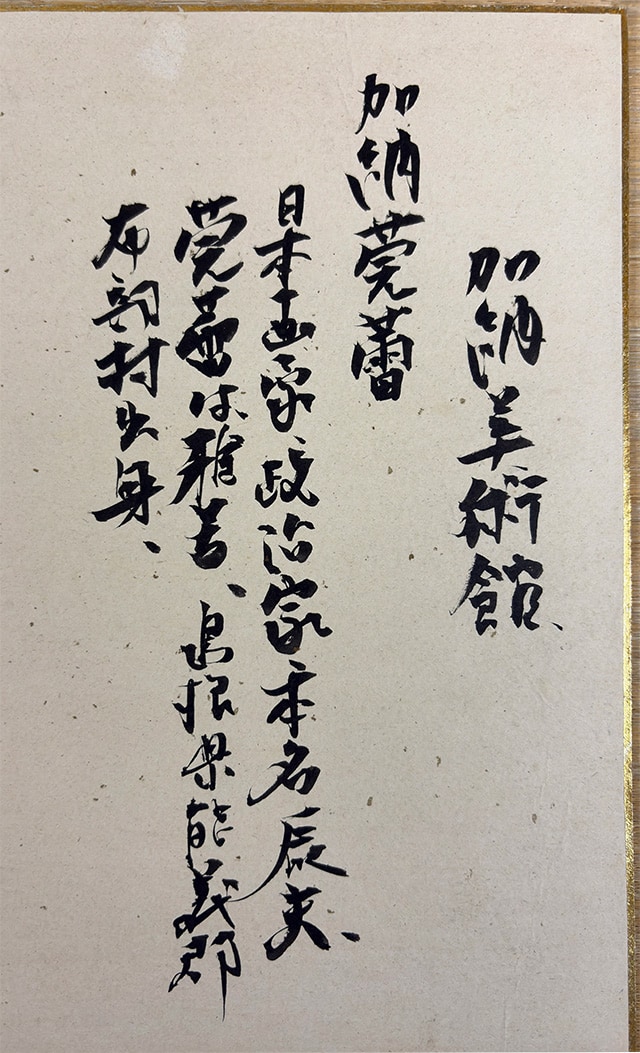 加納美術館、
加納莞蕾
日本画家、政治家本名辰夫、
莞蕾は雅号、島根県能義郡
布部村出身、